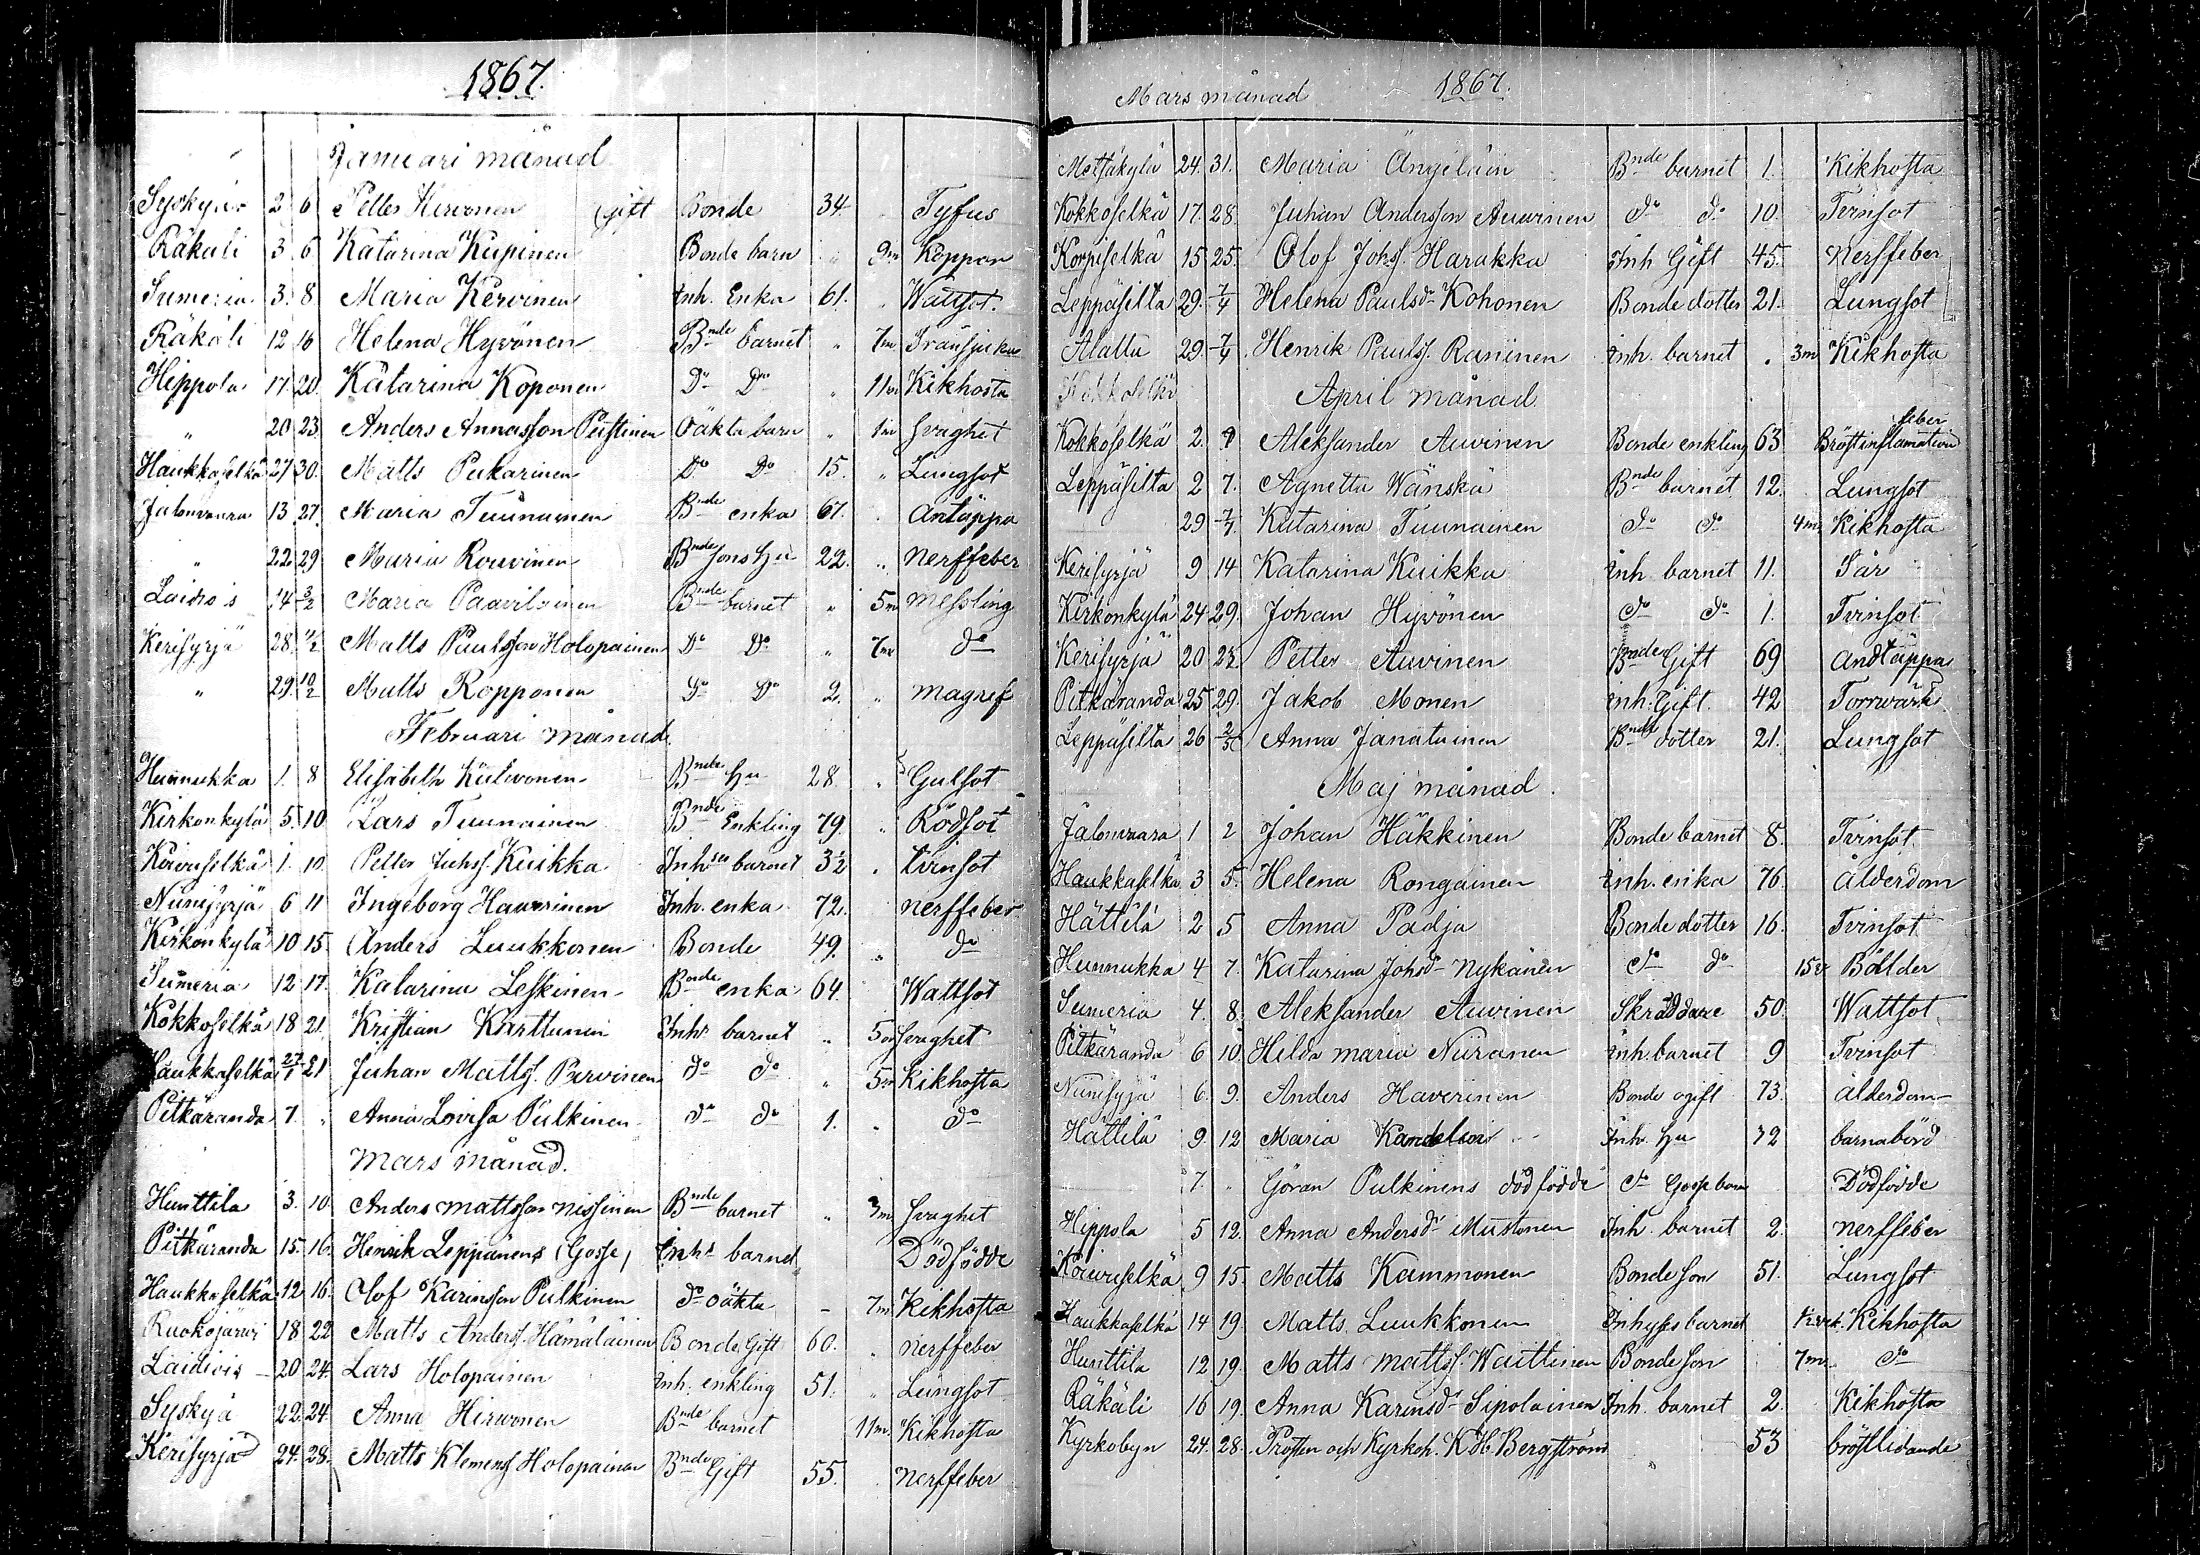 1867.
Januari månad
Syskyjä 2 6 Petter Hirvonen (gift Bonde 34. " Tyfus
Räkäli 3. 6 Katarina Kupinen Bonde barn " 9m Koppor
Sumeria 3. 8 Maria Kervinen Inh. Enka 61. " Wattsot.
Räkäli 12 16 Helena Hyvönen Bnde barnet " 7m
Hippola 17 20. Katarina Koponen Do Do " 11m Kikhosta
" 20 23. Anders Annasson Pustinen Oäkta barn " 1m svaghet
Haukkaselkä 27 30. Matts Pukarinen Do Do 15. " Lungsot
Jalonvaara 13 27. Maria Tuunainen Bnde enka 67. " Antäppa
" 22 29 Maria Rouvinen Bnde sons hu 22. " nerffeber
Laidiois 14 3/2 Maria Paavilainen Bnde barnet " 5m messling
Kerisyrjä 28. 4/2 Matts Paulsson Holopainen Do Do " 7m do
" 29. 10/2 Matts Ropponen Do Do 2. " magref
Februari månad
Hunnukka 1. 8 Elisabeth Kulvonen Bnde hu 28 " Gulsot
Kirkonkylä 5. 10 Lars Tuunainen Bnde Enkling 79. " Rödsot
Koivuselkä 1. 10. Petter Juhss. Kuikka Inhses barnet 3½ " tvinsot
Niinisyrjä 6 11 Ingeborg Haverinen Inh. enka 72. nerffeber
Kirkonkylä 10 15. Anders Luukkonen Bonde 49. " do
Sumeria 12 17. Katarina Leskinen Bnde enka 64. Wattsot
Kokkoselkä 18 21. Kristian Karttunen Inhs barnet " 5m svaghet
Haukkaselkä 27/1 21 Juhan Matss. Parvinen do do " 5m Kikhosta
Pitkäranda 7. " Anna Lovisa Pulkinen do do 1. " do
Mars månad.
Hunttila 3. 10. Anders Mattsson Nissinen Bnde barnet " 3m svaghet
Pitkäranda 15. 16. Henrik Leppänens (Gosse) Inhs barnet Dödfödde
Haukkaselkä 12 16. Olof Karinsson Pulkinen do oäkta - 7m Kikhosta
Ruokojärvi 18 22 Matts Anderss. Hämäläinen Bonde Gift 60. " nerffeber
Laidiois 20 24. Lars Holopainen inh. enkling 51. " Lungsot
Syskyä 22. 24. Anna Hirvonen Bnde barnet 11m. Kikhosta
Kerisyrjä 24. 28. Matts Klemenss Holopainen Bnde Gift 55. " nerffeber
Mars månad 1867.
Metsäkylä 24. 31. Maria Ängeläin Bnde barnet 1. Kikhosta
Kokkoselkä 17. 28. Juhan Andersson Auvinen do do 10. Tvinsot
Korpiselkä 15 25. Olof Johss. Harakka Inh Gift 45. nerffeber
Leppäsilta 29. 7/4 Helena Paulsdr Kohonen Bonde dotter 21. Lungsot
Alattu 29. 7/4 Henrik Paulss. Raninen inh. barnet " 3m Kikhosta
Kokkoselkä
April månad
Kokkoselkä 2. 7 Aleksander Auvinen Bonde enkling 63 Bröstinflamation feber
Leppäsilta 2 7. Agnetta Wänskä Bnde barnet 12. Lungsot
29 7/4. Katarina Tuunainen do do 4m Kikhosta
Kerisyrjä 9 14 Katarina Kuikka inh. barnet 11. Sår
Kirkonkylä 24 29. Johan Hyvönen do do 1. Tvinsot
Kerisyrjä 20 22. Petter Auvinen Bnde Gift 69 andtäppa
Pitkäranda 25 29. Jakob Monen inh: Gift. 42 Torrvärk
Leppäsilta 26 2/5 Anna Janatuinen Bnde dotter 21. Lungsot
Maj månad.
Jalonvaara 1 2 Johan Häkkinen Bonde barnet 8. Tvinsot
Haukkaselkä 3 5. Helena Rongainen inh. enka 76. ålderdom
Hättilä 2 5 Anna Padja Bonde dotter 16. Tvinsot
Hunnukka 4 7. Katarina Johsdr Nykänen do do Bölder
Sumeria 4. 8. Aleksander Auvinen Skräddare 50. Wattsot
Pitkäranda 6 10. Hilda maria Niiranen inh. barnet 9 Tvinsot
Niinisyrjä 6. 9. Anders Haverinen Bonde ogift 73. ålderdom
Hättilä 9. 12 Maria Inh. hu 72 barnabörd
7 " Göran Pulkinens dödfödde do Gosse barn Dödfödde
Hippola 5 12. Anna Andersdr Mustonen Inh. barnet 2. nerffeber
Koivuselkä 9 15. Matts Kammonen Bonde son 51. Lungsot
Haukkaselkä 14 19. Matts Luukkonen Inhyses barnet Kikhosta
Hunttila 12 19. Matts Mattss. Wauttinen Bonde son 7m. do
Räkäli 16 19. Anna Karinsdr Sipolainen Inh. barnet 2. Kikhosta
Kyrkobyn 24. 28. Prosten och Kyrkoh. K. H. Bergström 53 bröstlidande